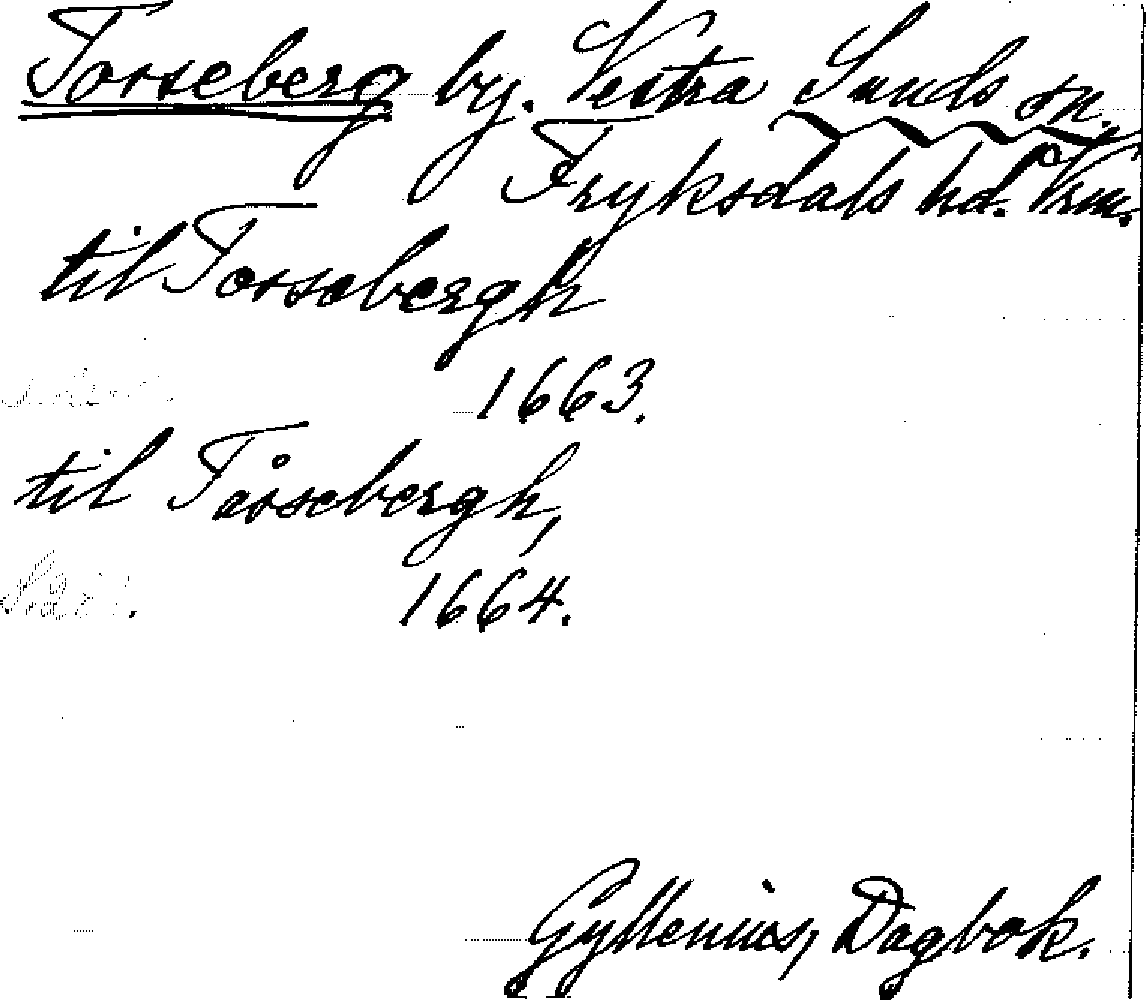 Torseberg by. Vestra Sunds sn.
Fryksdals hd. Vrm.
til Torsebergh
1663.
til Tårsebergh,
1664.
Gyllenius, Dagbok.